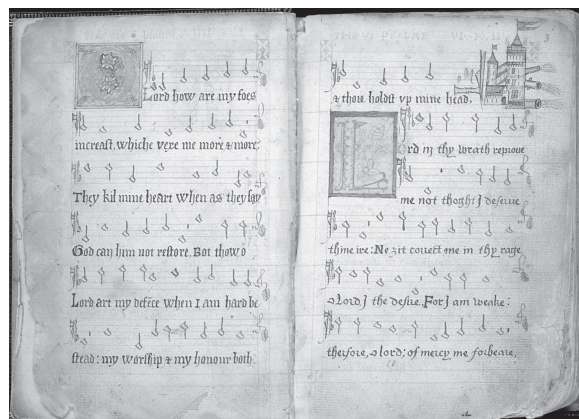 Lord how are my foes
increast, whiche vexe me more & more:
They kil mine heart when as they say
God can him not restore. Bot thow o
Lord art my defēce when I am hard be
stead: my worship & my honour both.
3
& thou holdst vp mine head.
Lord in thy wrath reproue
me not thoght J deserue
thine ire: Ne zit correct me in thy rage
o Lord J the desire. For J am weake:
therfore, o lord: of mercy me forbeare,